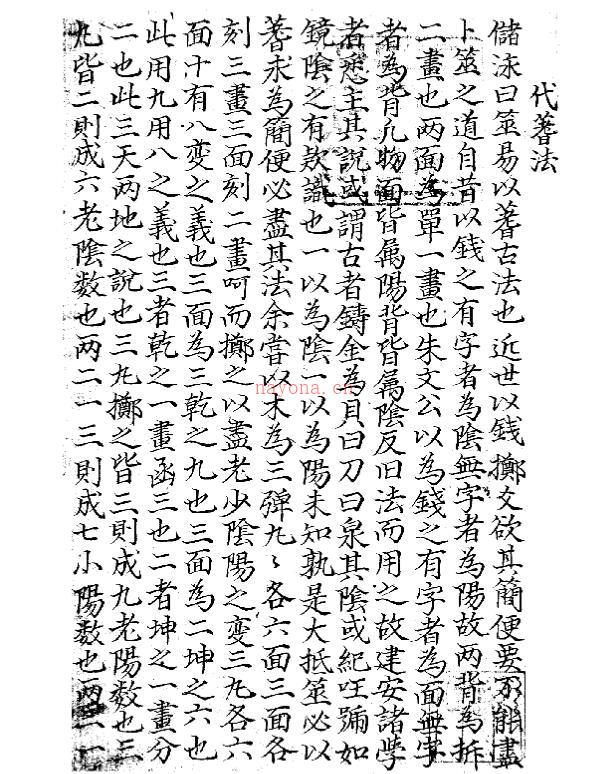 代蓍法
儲泳曰筮易以蓍古法也近世以錢擲文欲其簡便要不能盡
卜筮之道自昔以錢之有字者為陰無字者為陽故两背為拆
二畫也两面為單一畫也朱文公以為錢之有字者為面無字
者為背凡物面皆屬陽背皆屬陰反旧法而用之故建安諸學
者悉主其說或謂古者鑄金為貝曰刀曰泉其陰或紀囯號如
鏡陰之有欵識也一以為陰一以為陽未知孰是大抵筮必以
蓍求為簡便必盡其法余嘗以木為三彈丸丸各六面三面各
刻三畫三面刻二畫呵而擲之以盡老少陰陽之变三丸各六
面十有八变之義也三面為三乾之九也三面為二坤之六也
此用九用八之義也三者乾之一畫函三也二者坤之一畫分
二也此三天两地之說也三丸擲之皆三則成九老陽数也三
丸皆二則成六老陰数也两二一三則成七小陽数也两一一
nayona.cn